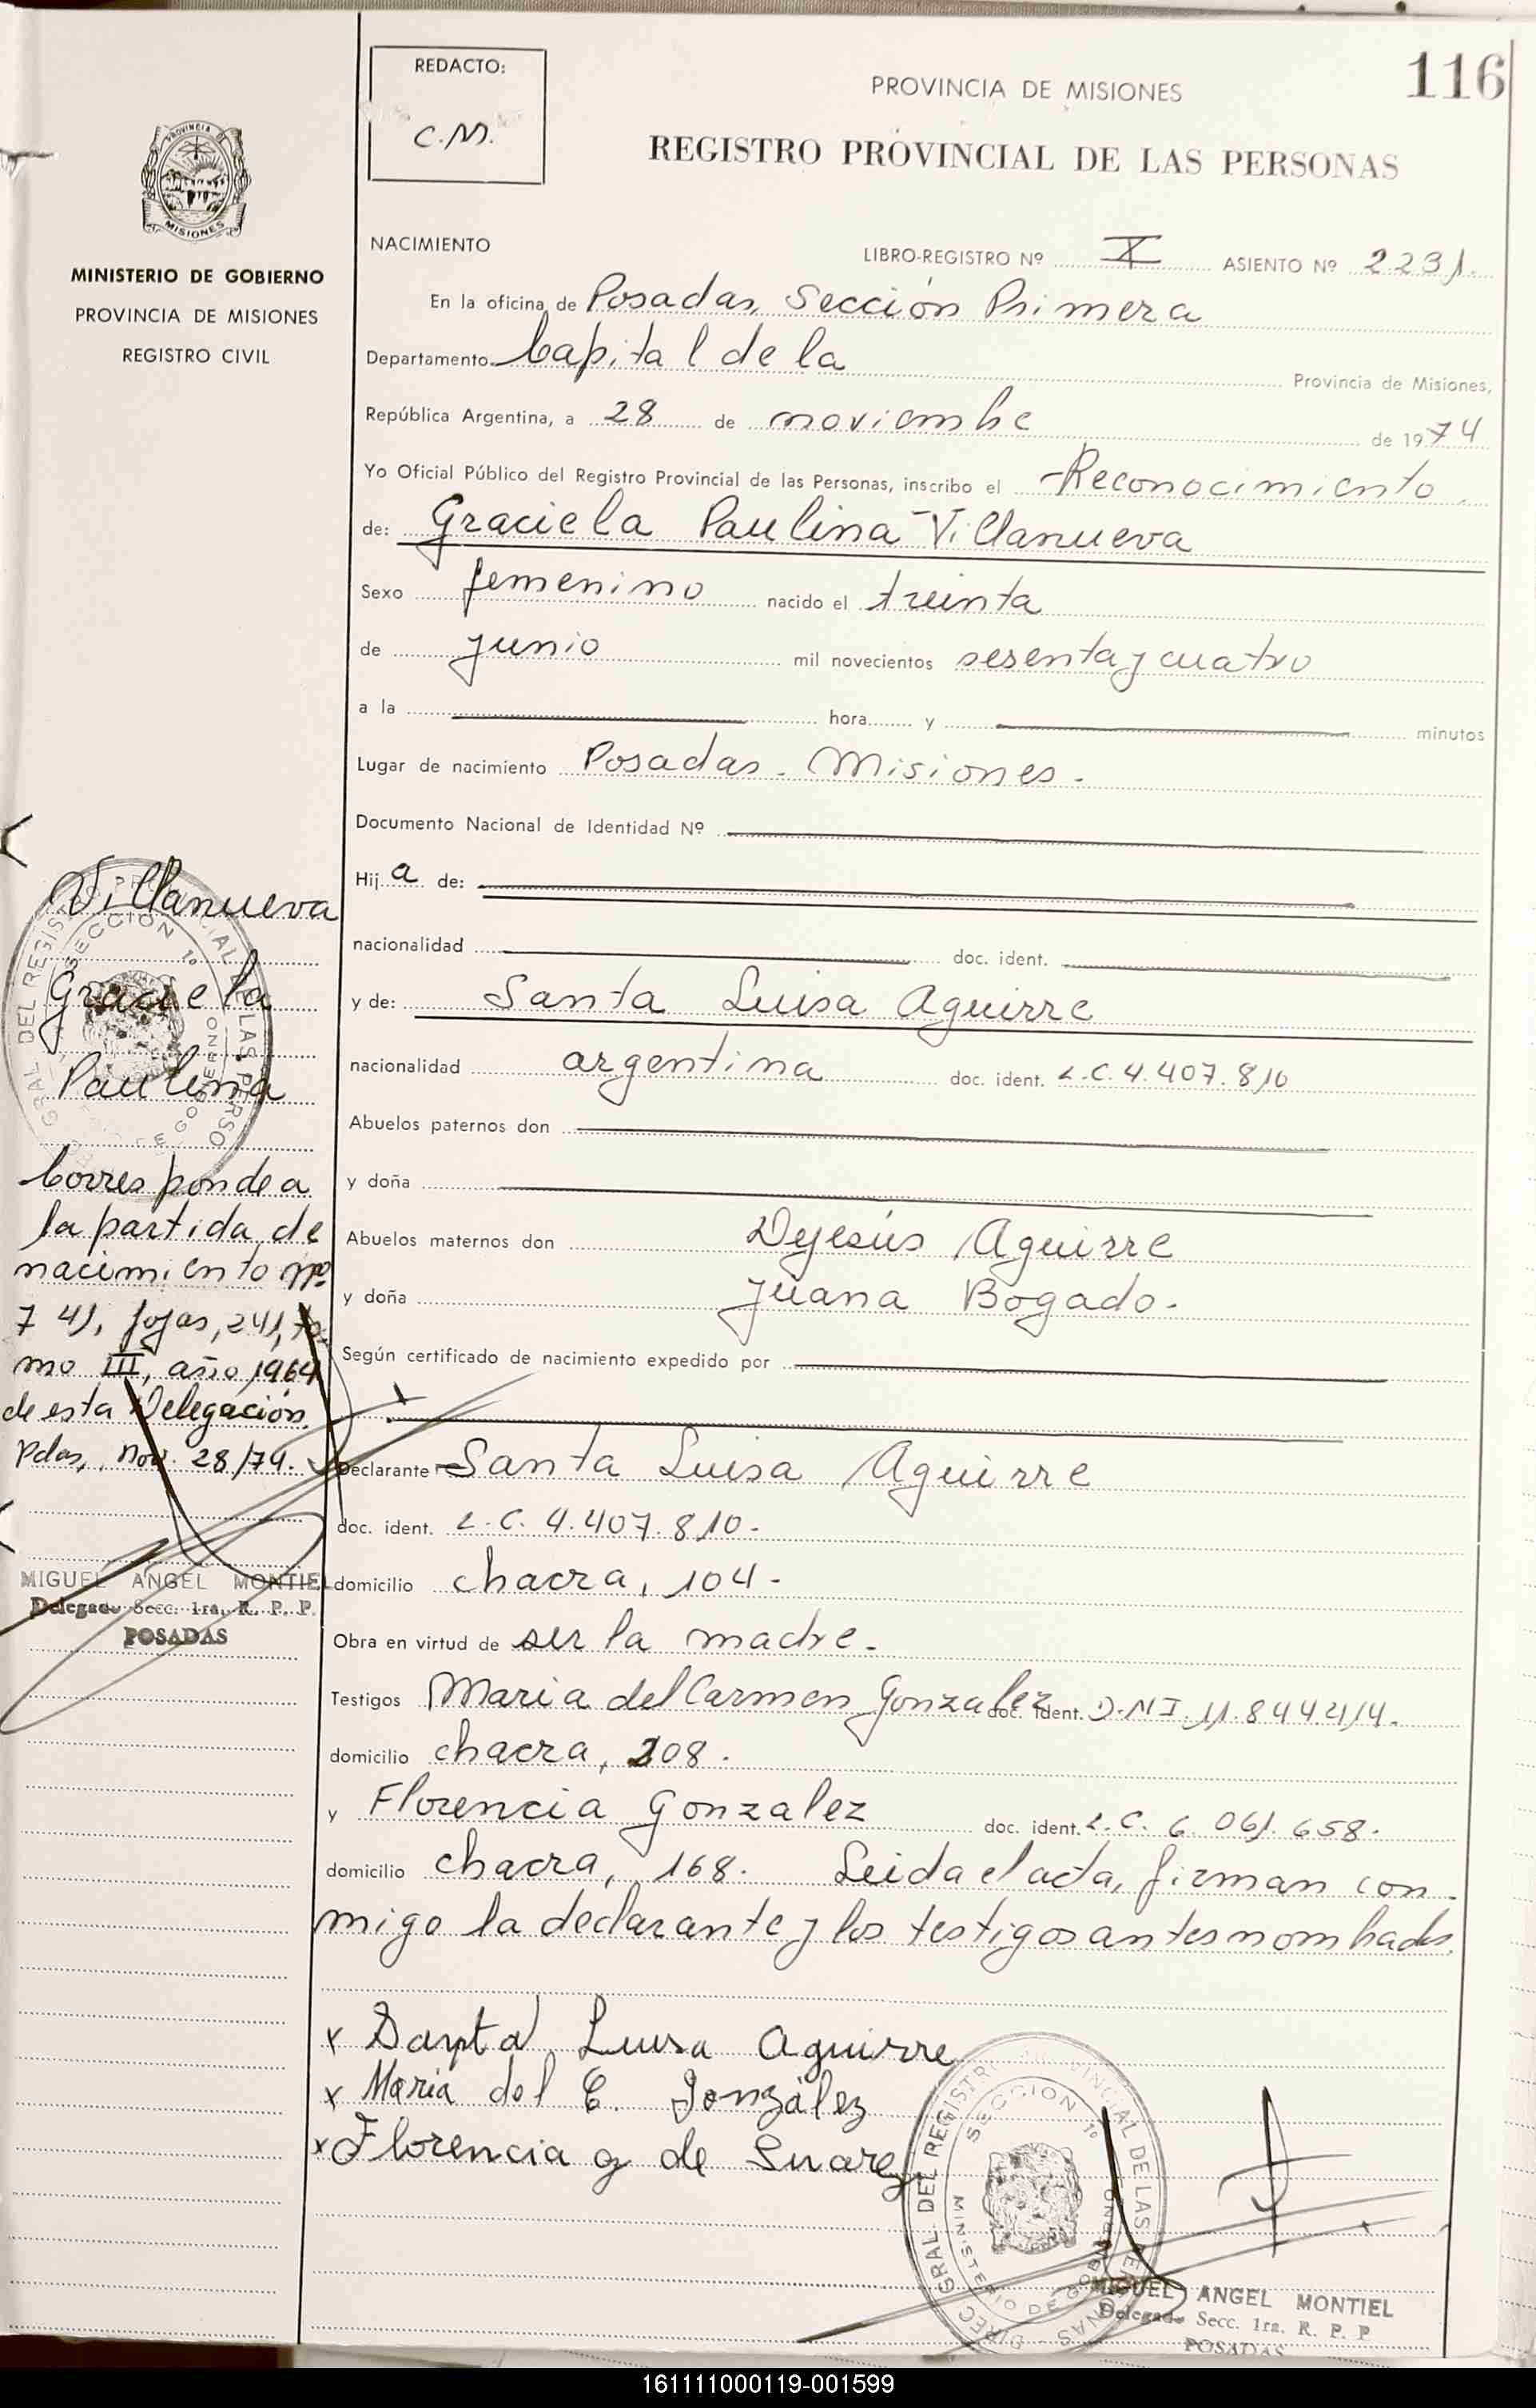 116
REDACTO:
C.M.
PROVINCIA DE MISIONES
REGISTRO PROVINCIAL DE LAS PERSONAS
PROVINCIA DE
MISIONES
MINISTERIO DE GOBIERNO
PROVINCIA DE MISIONES
REGISTRO CIVIL
NACIMIENTO LIBRO-REGISTRO Nº X ASIENTO Nº 2231.
En la oficina de Posadas, Sección Primera
Departamento Capital de la Provincia de Misiones,
República Argentina, a 28 de noviembre de 1974
Yo Oficial Público del Registro Provincial de las Personas, inscribo el Reconocimiento
de: Graciela Paulina Villanueva
Sexo femenino nacido el treinta
de junio mil novecientos sesenta y cuatro
a la hora y minutos
Lugar de nacimiento Posadas. Misiones.
Documento Nacional de Identidad Nº
Hija de:
nacionalidad doc. ident.
y de: Santa Luisa Aguirre
nacionalidad argentina doc. ident. L.C. 4.407.810
Abuelos paternos don
y doña
Abuelos maternos don Dejesús Aguirre
y doña Juana Bogado.
Según certificado de nacimiento expedido por
Declarante Santa Luisa Aguirre
doc. ident. L.C. 4.407.810.
domicilio chacra, 104.
Obra en virtud de ser la madre.
Testigos Maria del Carmen Gonzalez doc. ident. D.N.I. 11.844.414.
domicilio chacra, 208.
y Florencia Gonzalez doc. ident. L.C. 6.061.658.
domicilio chacra, 168. Leida el acta, firman con
migo la declarante y los testigos antes nombrados.
x Santa Luisa Aguirre
x Maria del C. González
x Florencia G de Suarez
MIGUEL ANGEL MONTIEL
Delegado Secc. 1ra. R. P. P
POSADAS
DIREC GRAL DEL REGISTRO PROVINCIAL DE LAS PERSONAS
SECCION 1º
MINISTERIO DE GOBIERNO
Villanueva
Graciela
Paulina
Corresponde a
la partida de
nacimiento nº
741, fojas, 241, to
mo III, año 1964
de esta Delegación.
Pdas, Nov. 28/74.
MIGUEL ANGEL MONTIEL
Delegado Secc. 1ra. R. P. P.
POSADAS
161111000119-001599